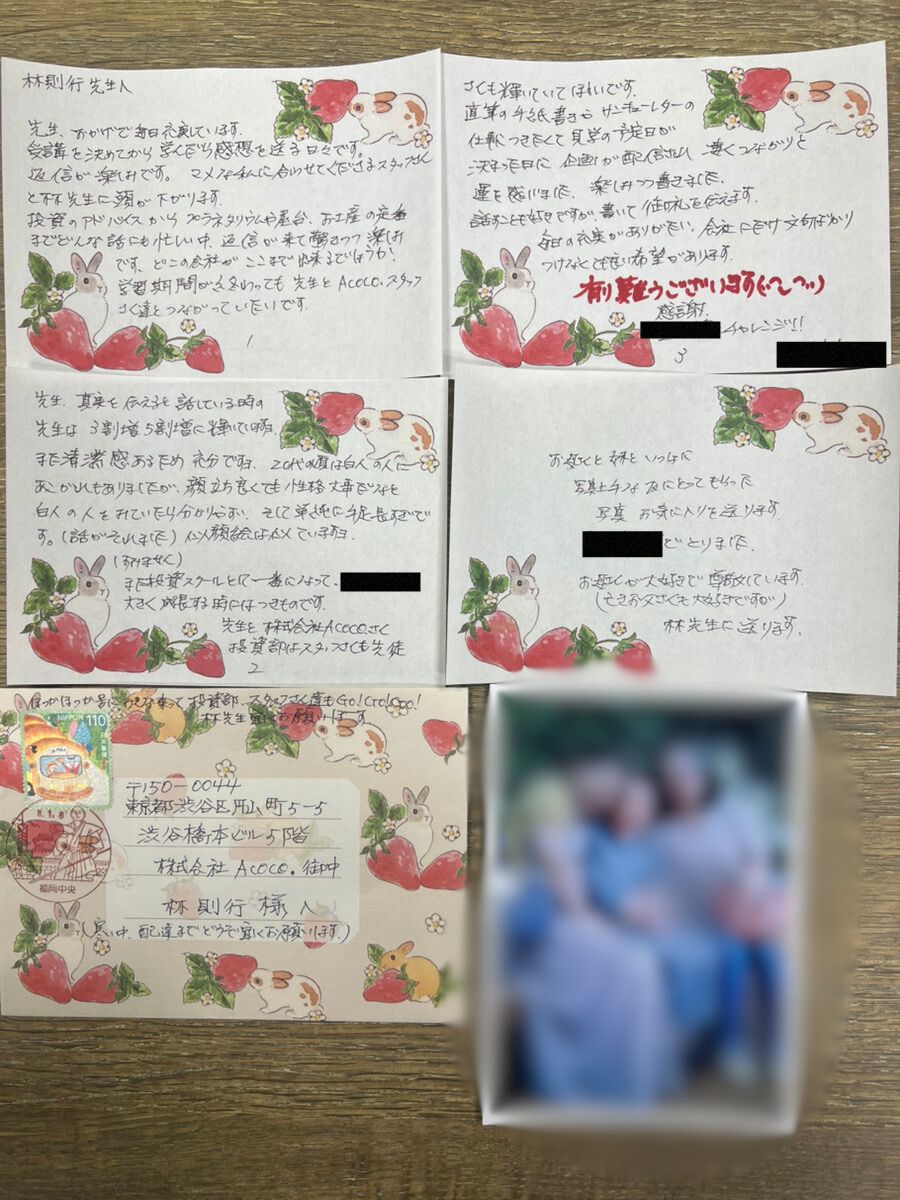 林則行先生へ
先生、おかげで毎日充実しています。
受講を決めてから学んだら感想を送る日々です。
返信が楽しみです。マメな私に合わせてくださるスタッフさん
と林先生に頭が下がります。
投資のアドバイスからプラネタリウムや屋台、お土産の定番
までどんな話にも忙しい中、返信が来て驚きつつ楽しみ
です。どこの会社がここまで出来るでしょうか!
学習期間が終わっても先生とAcoco.スタッフ
さん達とつながっていたいです。
1
先生、真実を伝えると話している時の
先生は3割増5割増に輝いています。
また清潔感あるため充分です。20代の頃は白人の人に
あこがれもありましたが、顔立ち良くても性格大事だなと
白人の人をみていたら分からない、そして単純に手足長いで
す。(話がそれました)似顔絵は似ています。
(すみません)
また投資スクールとして一番になって、
大きく成長する時にはつきものです。
先生と株式会社Acocoさん
投資部はスタッフさんも生徒
2
さんも輝いていてほしいです。
直筆の手紙書きからサンキューレターの
仕組つきたくて見学の予定日が
決まった日に企画が配信され 導くつながりと
運を感じました。楽しみつつ書きました。
話すことも好きですが、書いて御礼を伝えます。
毎日の充実がありがたい、会社にだけ文句ばかり
つけなくても良い希望があります。
有難うございます(^~^)
感謝
チャレンジ!!
3
お母さんと妹といっしょに
写真上手な友にとってもらった
写真 お気に入りを送ります。
でとりました。
お母さんが大好きで尊敬しています。
(亡きお父さんも大好きですが)
林先生に送ります。
ほっかほっか号にみんな乗って投資部、スタッフさん達もGo!Go!Go!
林先生宜しくお願いします
NIPPON 110
〒150-0044
東京都渋谷区円山町5-5
渋谷橋本ビル5階
株式会社Acoco.御中
林則行様へ
(寒い中、配達までどうぞ宜しくお願います。)
8.1.8
福岡中央